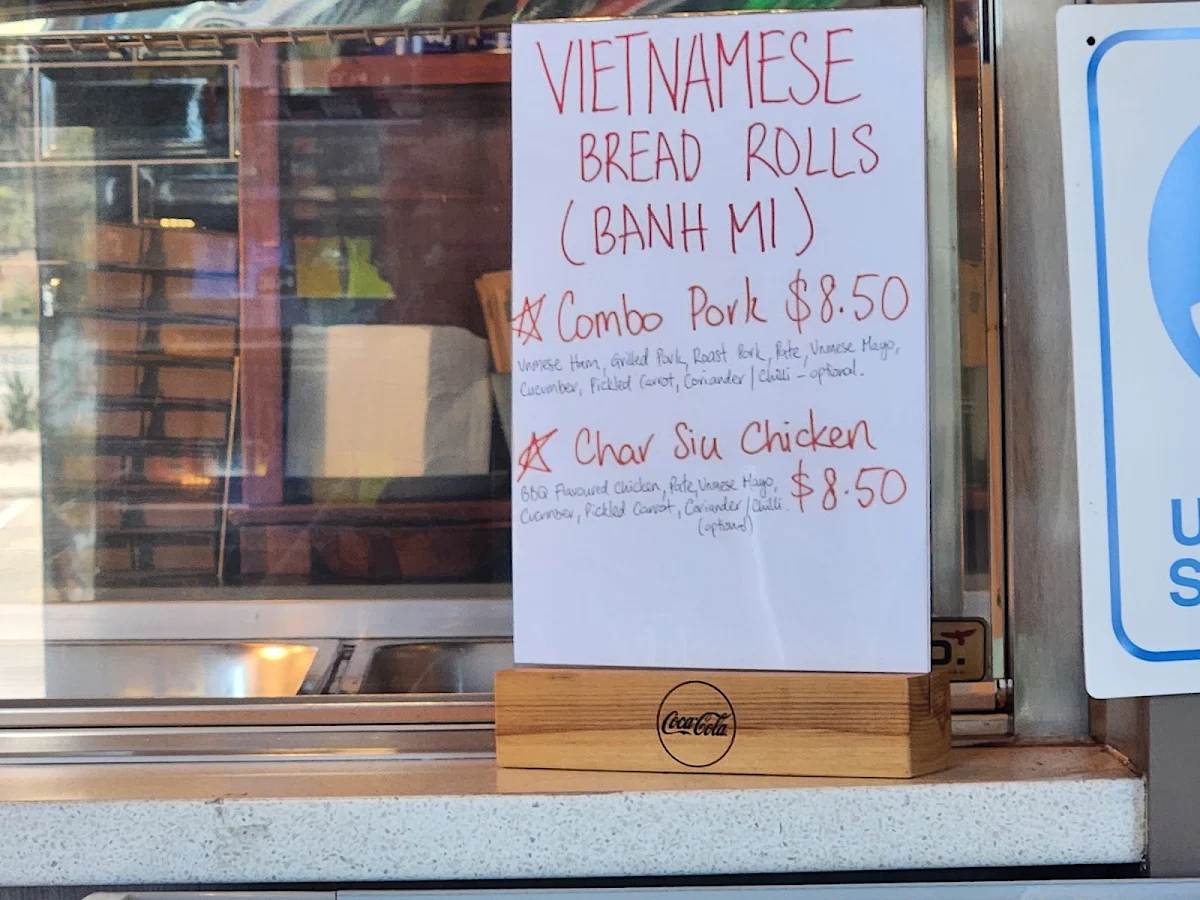 VIETNAMESE
BREAD ROLLS
(BANH MI)
☆ Combo Pork $8.50
Vnmese Ham, Grilled Pork, Roast Pork, Pate, Vnmese Mayo,
Cucumber, Pickled Carrot, Coriander / Chilli - optional.
☆ Char Siu Chicken
BBQ Flavoured Chicken, Pate, Vnmese Mayo, $8.50
Cucumber, Pickled Carrot, Coriander / Chilli.
(optional)
Coca-Cola
U
S